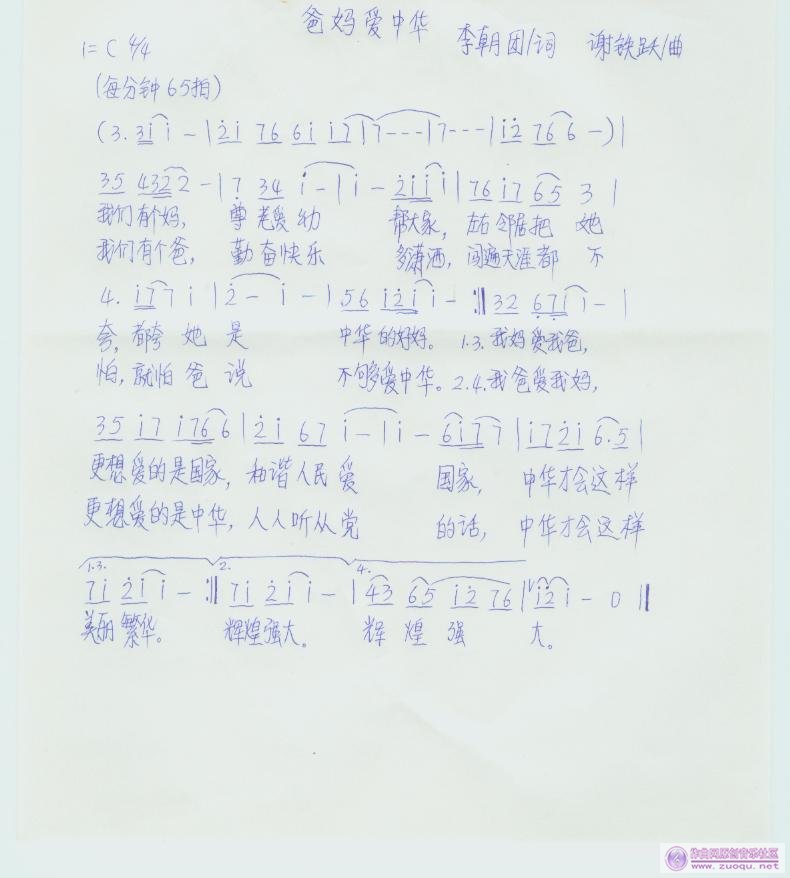 爸妈爱中华
1=C 4/4 李朝团/词 谢铁跃/曲
(每分钟65拍)
(3. 3i i - | 2i 76 6i i7 | 7 - - - | 7 - - - | i2 76 6 -) |
35 4322 - | 7 34 i - | i - 2iii | 76 i7 65 3 |
我们有个妈, 尊老爱幼 帮大家, 左右邻居把她
我们有个爸, 勤奋快乐 多潇洒, 闯遍天涯都不
4. i77 i | 2 - i - | 56 i2i i - :|| 32 67i i - |
夸, 都夸她是 中华的好妈。 1.3.我妈爱我爸,
怕, 就怕爸说 不够爱中华。 2.4.我爸爱我妈,
35 i7 i76 6 | 2i 67 i - | i - 6i77 | i7 2i 6.5 |
更想爱的是国家, 和谐人民爱 国家, 中华才会这样
更想爱的是中华, 人人听从党 的话, 中华才会这样
1.3. 2. 4.
7i 2i i - :|| 7i 2i i - | 43 65 i2 76 | i2 i - 0 ||
美丽繁华。 辉煌强大。 辉煌强 大。
作曲网原创音乐社区
www.zuoqu.net